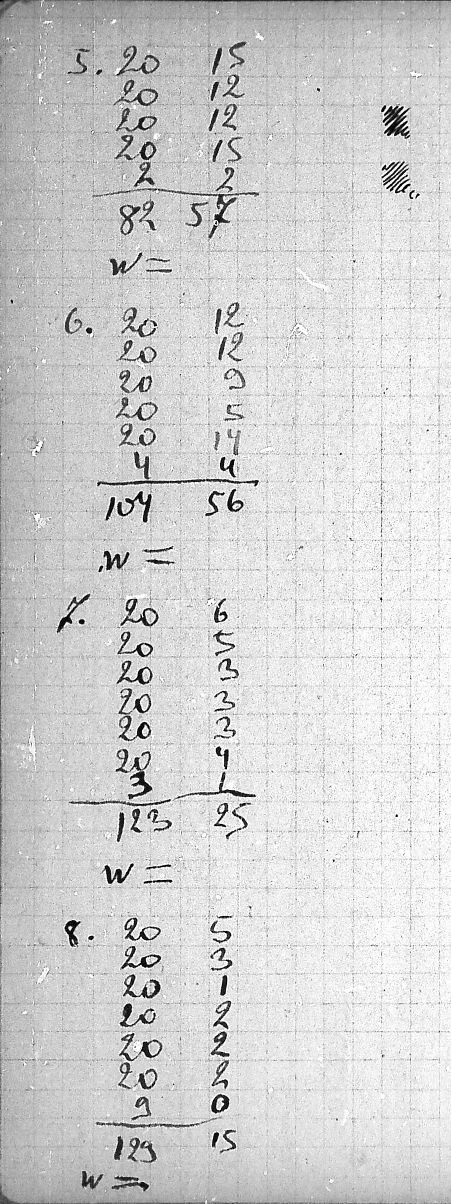 5. 20 15
20 12
20 12
20 15
2 2
82 57
w =
6. 20 12
20 12
20 9
20 5
20 14
4 4
104 56
w =
7. 20 6
20 5
20 3
20 3
20 3
20 4
3 1
123 25
w =
8. 20 5
20 3
20 1
20 2
20 2
20 2
9 0
129 15
w =